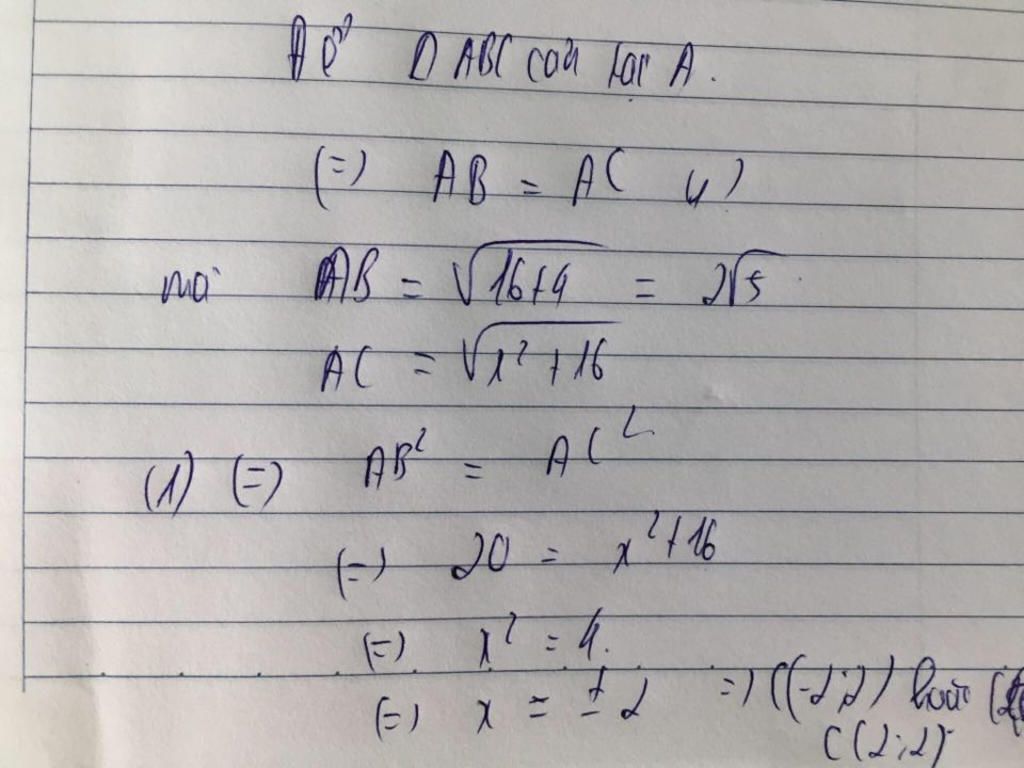 Để Δ ABC cân tại A.
(=) AB = AC (1)
mà AB = √16+4 = 2√5
AC = √x²+16
(1) (=) AB² = AC²
(=) 20 = x²+16
(=) x² = 4.
(=) x = ±2 =) C(-2;2) hoặc
C(2;2)